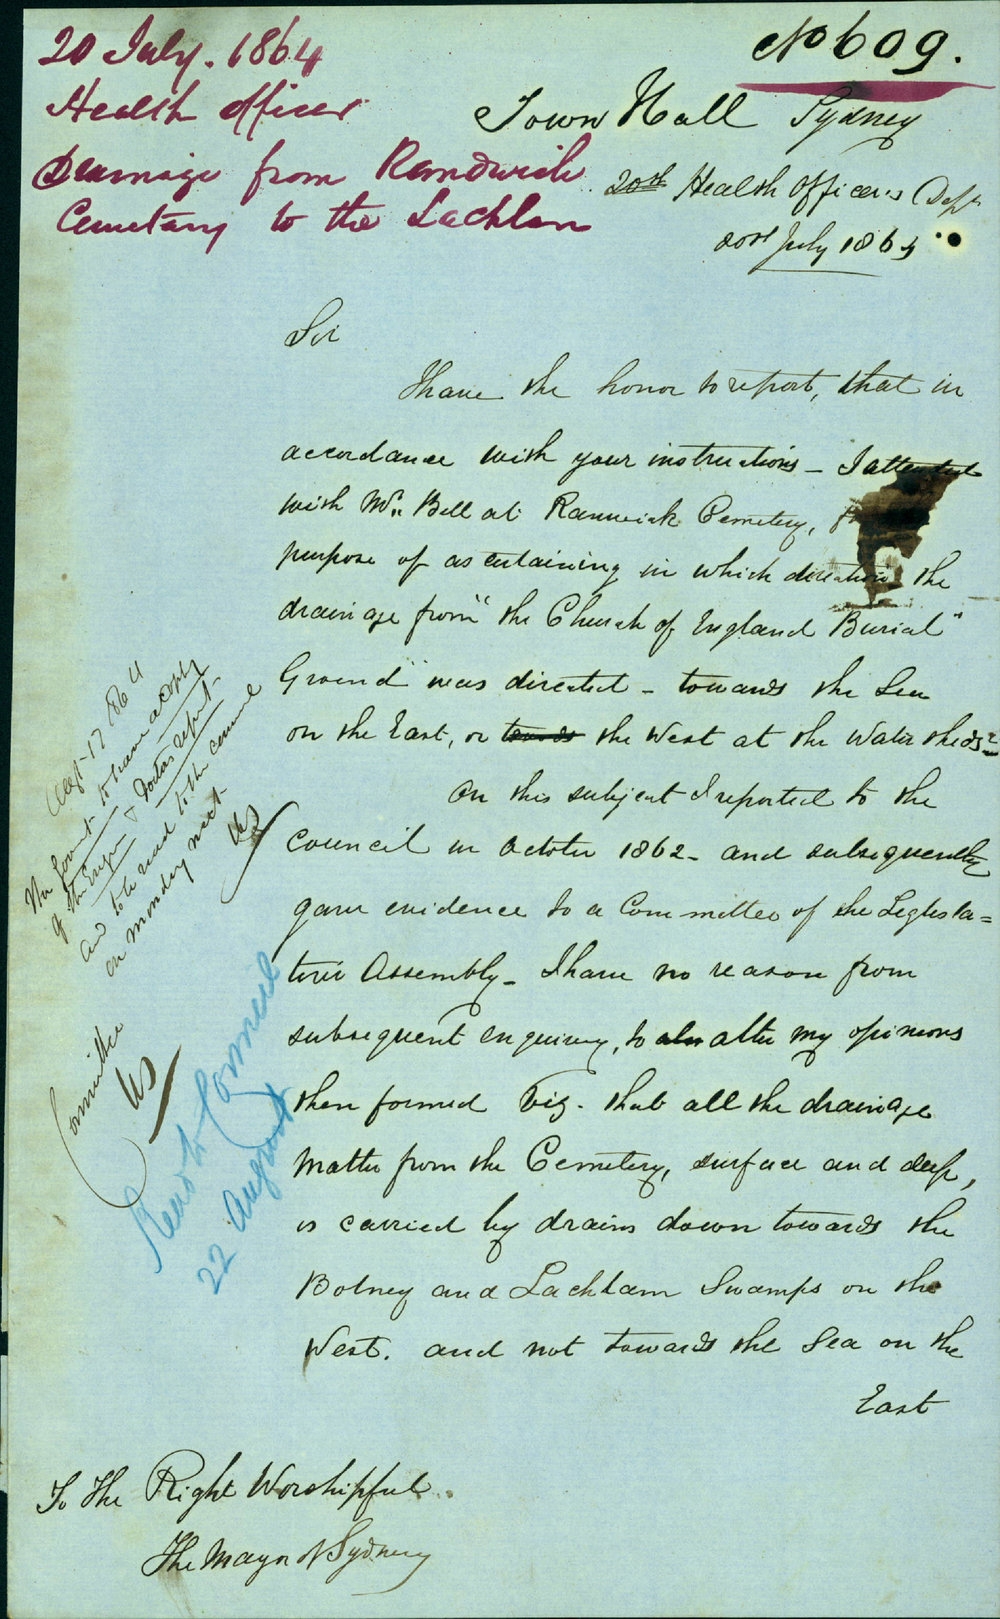 20 July. 1864
Health officer
Drainage from Randwick
Cemetary to the Lachlan
No 609.
Town Hall Sydney
20th Health Officer's Dept
20th July 1864
Sir
I have the honor to report, that in
accordance with your instructions - I attended
with Mr. Bell at Ranwick Cemetery,
purpose of ascertaining in which direction the
drainage from "the Church of England Burial"
Ground" was directed - towards the Sea
on the East, or towards the West at the Water sheds?
On this subject I reported to the
Council in October 1862 - and subsequently
gave evidence to a Committee of the Legisla=
tive Assembly - I have no reason from
subsequent enquiry, to alter my opinions
then formed viz. that all the drainage
Matter from the Cemetery, surface and deep,
is carried by drains down towards the
Botney and Lachlam Swamps on the
West. and not towards the Sea on the
East
To The Right Worshipful
The Mayor of Sydney
to have a copy
of the Engr & Doctors report
and to be read to the Council
on Monday next
Committee
Read to Council
22 August